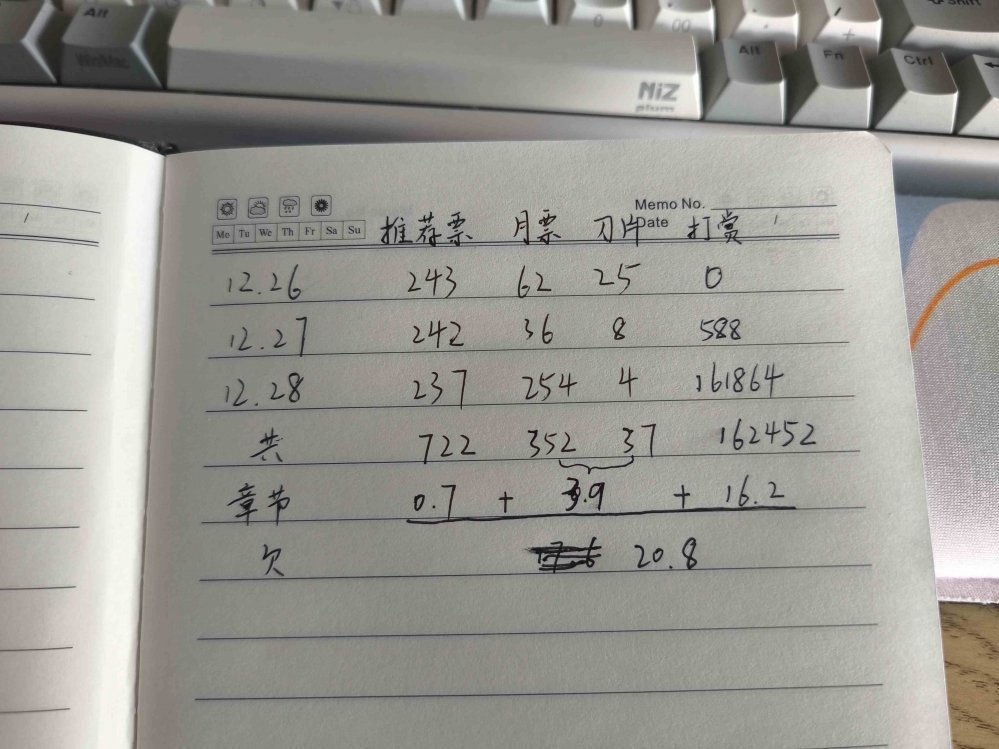 Alt
Win/Mac
0
00
Shift
Alt
Fn
Ctrl
NiZ
plum
Memo No.
Date
Mo Tu We Th Fr Sa Su
推荐票 月票 刀片 打赏
12.26 243 62 25 0
12.27 242 36 8 588
12.28 237 254 4 161864
共 722 352 37 162452
章节 0.7 + 3.9 + 16.2
欠 20.8